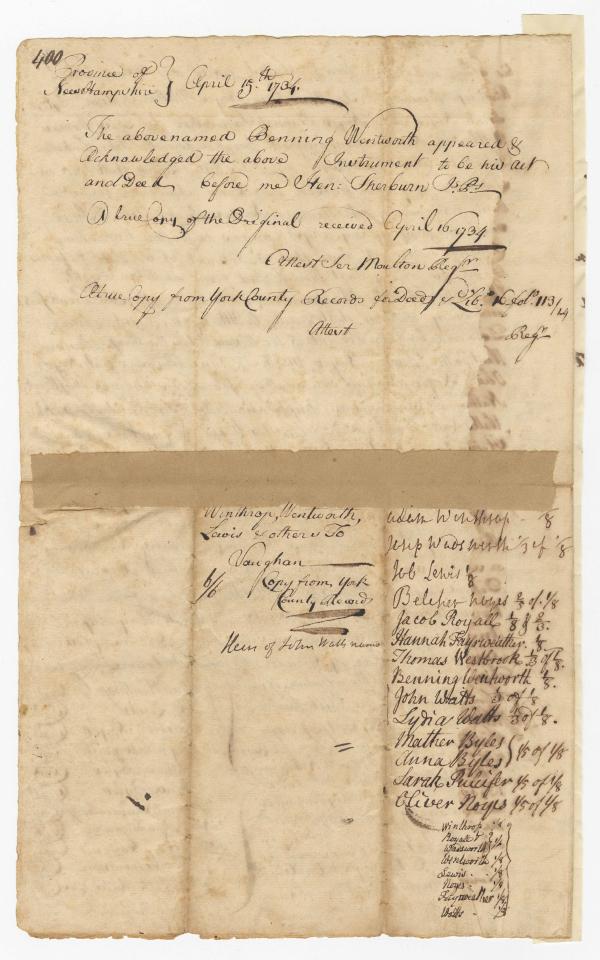 400
Province of
New Hampshire } April 15.th 1734.
The abovenamed Benning Wentworth appeared &
Acknowledged the above Instrument to be his act
and Deed before me Hen: Sherburn
A true Copy of the Original received April 16. 1734
Attest Jer Moulton Regr
A true Copy from York County Records for Deeds Lib. 16 fol. 113/14
Attest Regr
Winthrop, Wentworth,
Lewis & others To
Vaughan
6/6 Copy from York
County Records
Heirs of John Watts name
Adam Winthrop - 1/8
Wadsworth 1/3 of 1/8
Job Lewis 1/8
Belcher Noyes 2/5 of 1/8
Jacob Royall 1/8 & 2/3.
Hannah Fayrweather. 1/8
Thomas Westbrook 1/3 of 1/8.
Benning Wentworth 1/8.
John Watts 1/3 of 1/8
Lydia Watts 1/3 of 1/8.
Mather Byles
Anna Byles } 1/5 of 1/8
Sarah Pulcifer 1/5 of 1/8
Oliver Noyes 1/5 of 1/8
Winthrop
Royall &
Wadsworth
Wentworth 1/8
Lewis - 1/8
Noyes - 1/8
Fayrweather 1/8
Watts - 1/8